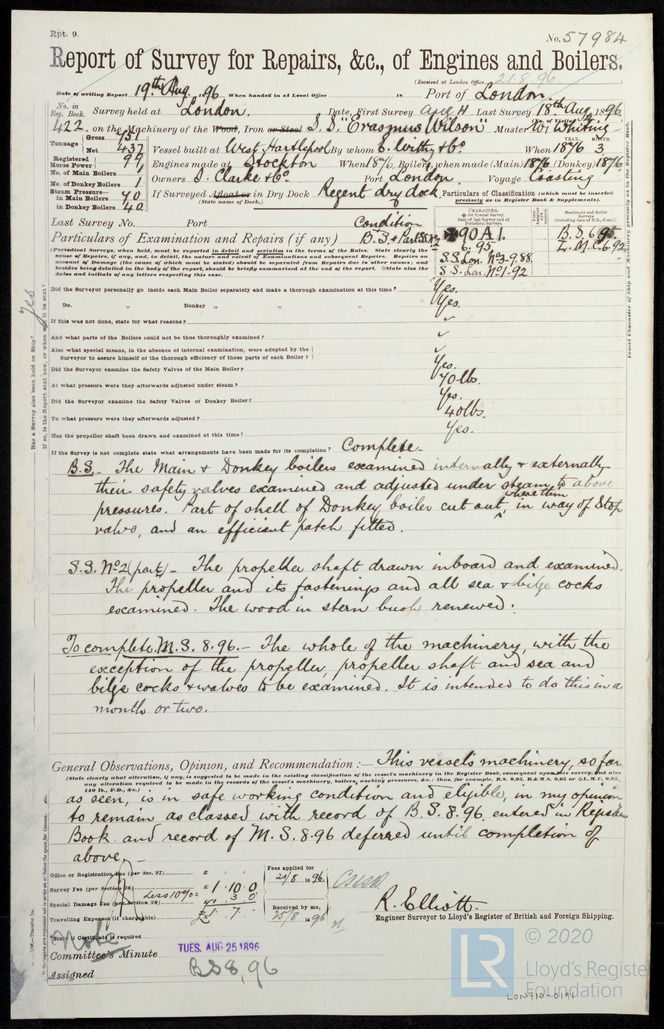 Rpt. 9.
No. 57984
Report of Survey for Repairs, &c., of Engines and Boilers.
(Received at London Office 21.8.96
Date of writing Report 19th Aug. 96 When handed in at Local Office 18 Port of London.
No. in Reg. Book. Survey held at London. Date, First Survey Last Survey 18th Aug. 1896
422, on the Machinery of the Wood, Iron or Steel S.S. "Erasmus Wilson" Master W. Whiting
Tonnage Gross 731 Net 437 Vessel built at West Hartlepool By whom E. Withy & Co When 1876 3
Registered Horse Power 99, Engines made at Stockton When 1876, Boilers, when made (Main) 1876 (Donkey) 1876
No. of Main Boilers Owners S. Clarke & Co. Port London. Voyage Coasting
No. of Donkey Boilers 1
Steam Pressure in Main Boilers 70 If Surveyed Afloat or in Dry Dock Regent dry dock
in Donkey Boilers 40 (State name of Dock.)
Particulars of Classification (which must be inserted precisely as in Register Book & Supplements).
Last Survey No. Port Condition
Particulars of Examination and Repairs (if any) B.S. & Part S.S. No 2
90 A1. B.S. 6.95
6.95. L.M.C. 6.92
S.S. Lon. No 3-9.88.
S.S. Lon. No 1-92
Did the Surveyor personally go inside each Main Boiler separately and make a thorough examination at this time? Yes.
Do. " Donkey " " " " Yes.
If this was not done, state for what reasons?
And what parts of the Boilers could not be thus thoroughly examined?
Also what special means, in the absence of internal examination, were adopted by the Surveyor to assure himself of the thorough efficiency of those parts of each Boiler?
Did the Surveyor examine the Safety Valves of the Main Boiler? Yes.
At what pressure were they afterwards adjusted under steam? 70 lbs.
Did the Surveyor examine the Safety Valves of Donkey Boiler? Yes.
To what pressure were they afterwards adjusted? 40 lbs.
Has the propeller shaft been drawn and examined at this time? Yes.
If the Survey is not complete state what arrangements have been made for its completion? Complete.
B.S. - The Main & Donkey boilers examined internally & externally
their safety valves examined and adjusted under steam to above
pressures. Part of shell of Donkey boiler cut out, where thin in way of Stop
valve, and an efficient patch fitted.
S.S. No 2 (part) - The propeller shaft drawn inboard and examined.
The propeller and its fastenings and all sea & bilge cocks
examined. The wood in stern bush renewed.
To complete M.S. 8.96. - The whole of the machinery, with the
exception of the propeller, propeller shaft and sea and
bilge cocks & valves to be examined. It is intended to do this in a
month or two.
General Observations, Opinion, and Recommendation :- This vessel's machinery, so far
as seen, is in safe working condition and eligible, in my opinion
to remain as classed with record of B.S. 8.96 entered in Register
Book and record of M.S. 8.96 deferred until completion of
above. -
Office or Registration Fee (per Sec. 27)
Survey Fee (per Section 28) £ 1 . 10 . 0
Special Damage Fee (per Section 28) Less 10% 3 0
Travelling Expenses (if chargeable) £ 1 . 7 . -
Fees applied for 21/8 1896
Received by me, 25/8 1896
R. Elliott
Engineer Surveyor to Lloyd's Register of British and Foreign Shipping.
State if Certificate is required
Committee's Minute TUES. AUG 25 1896
Assigned BS 8,96
LR © 2020
Lloyd's Register
Foundation
LON710-0191